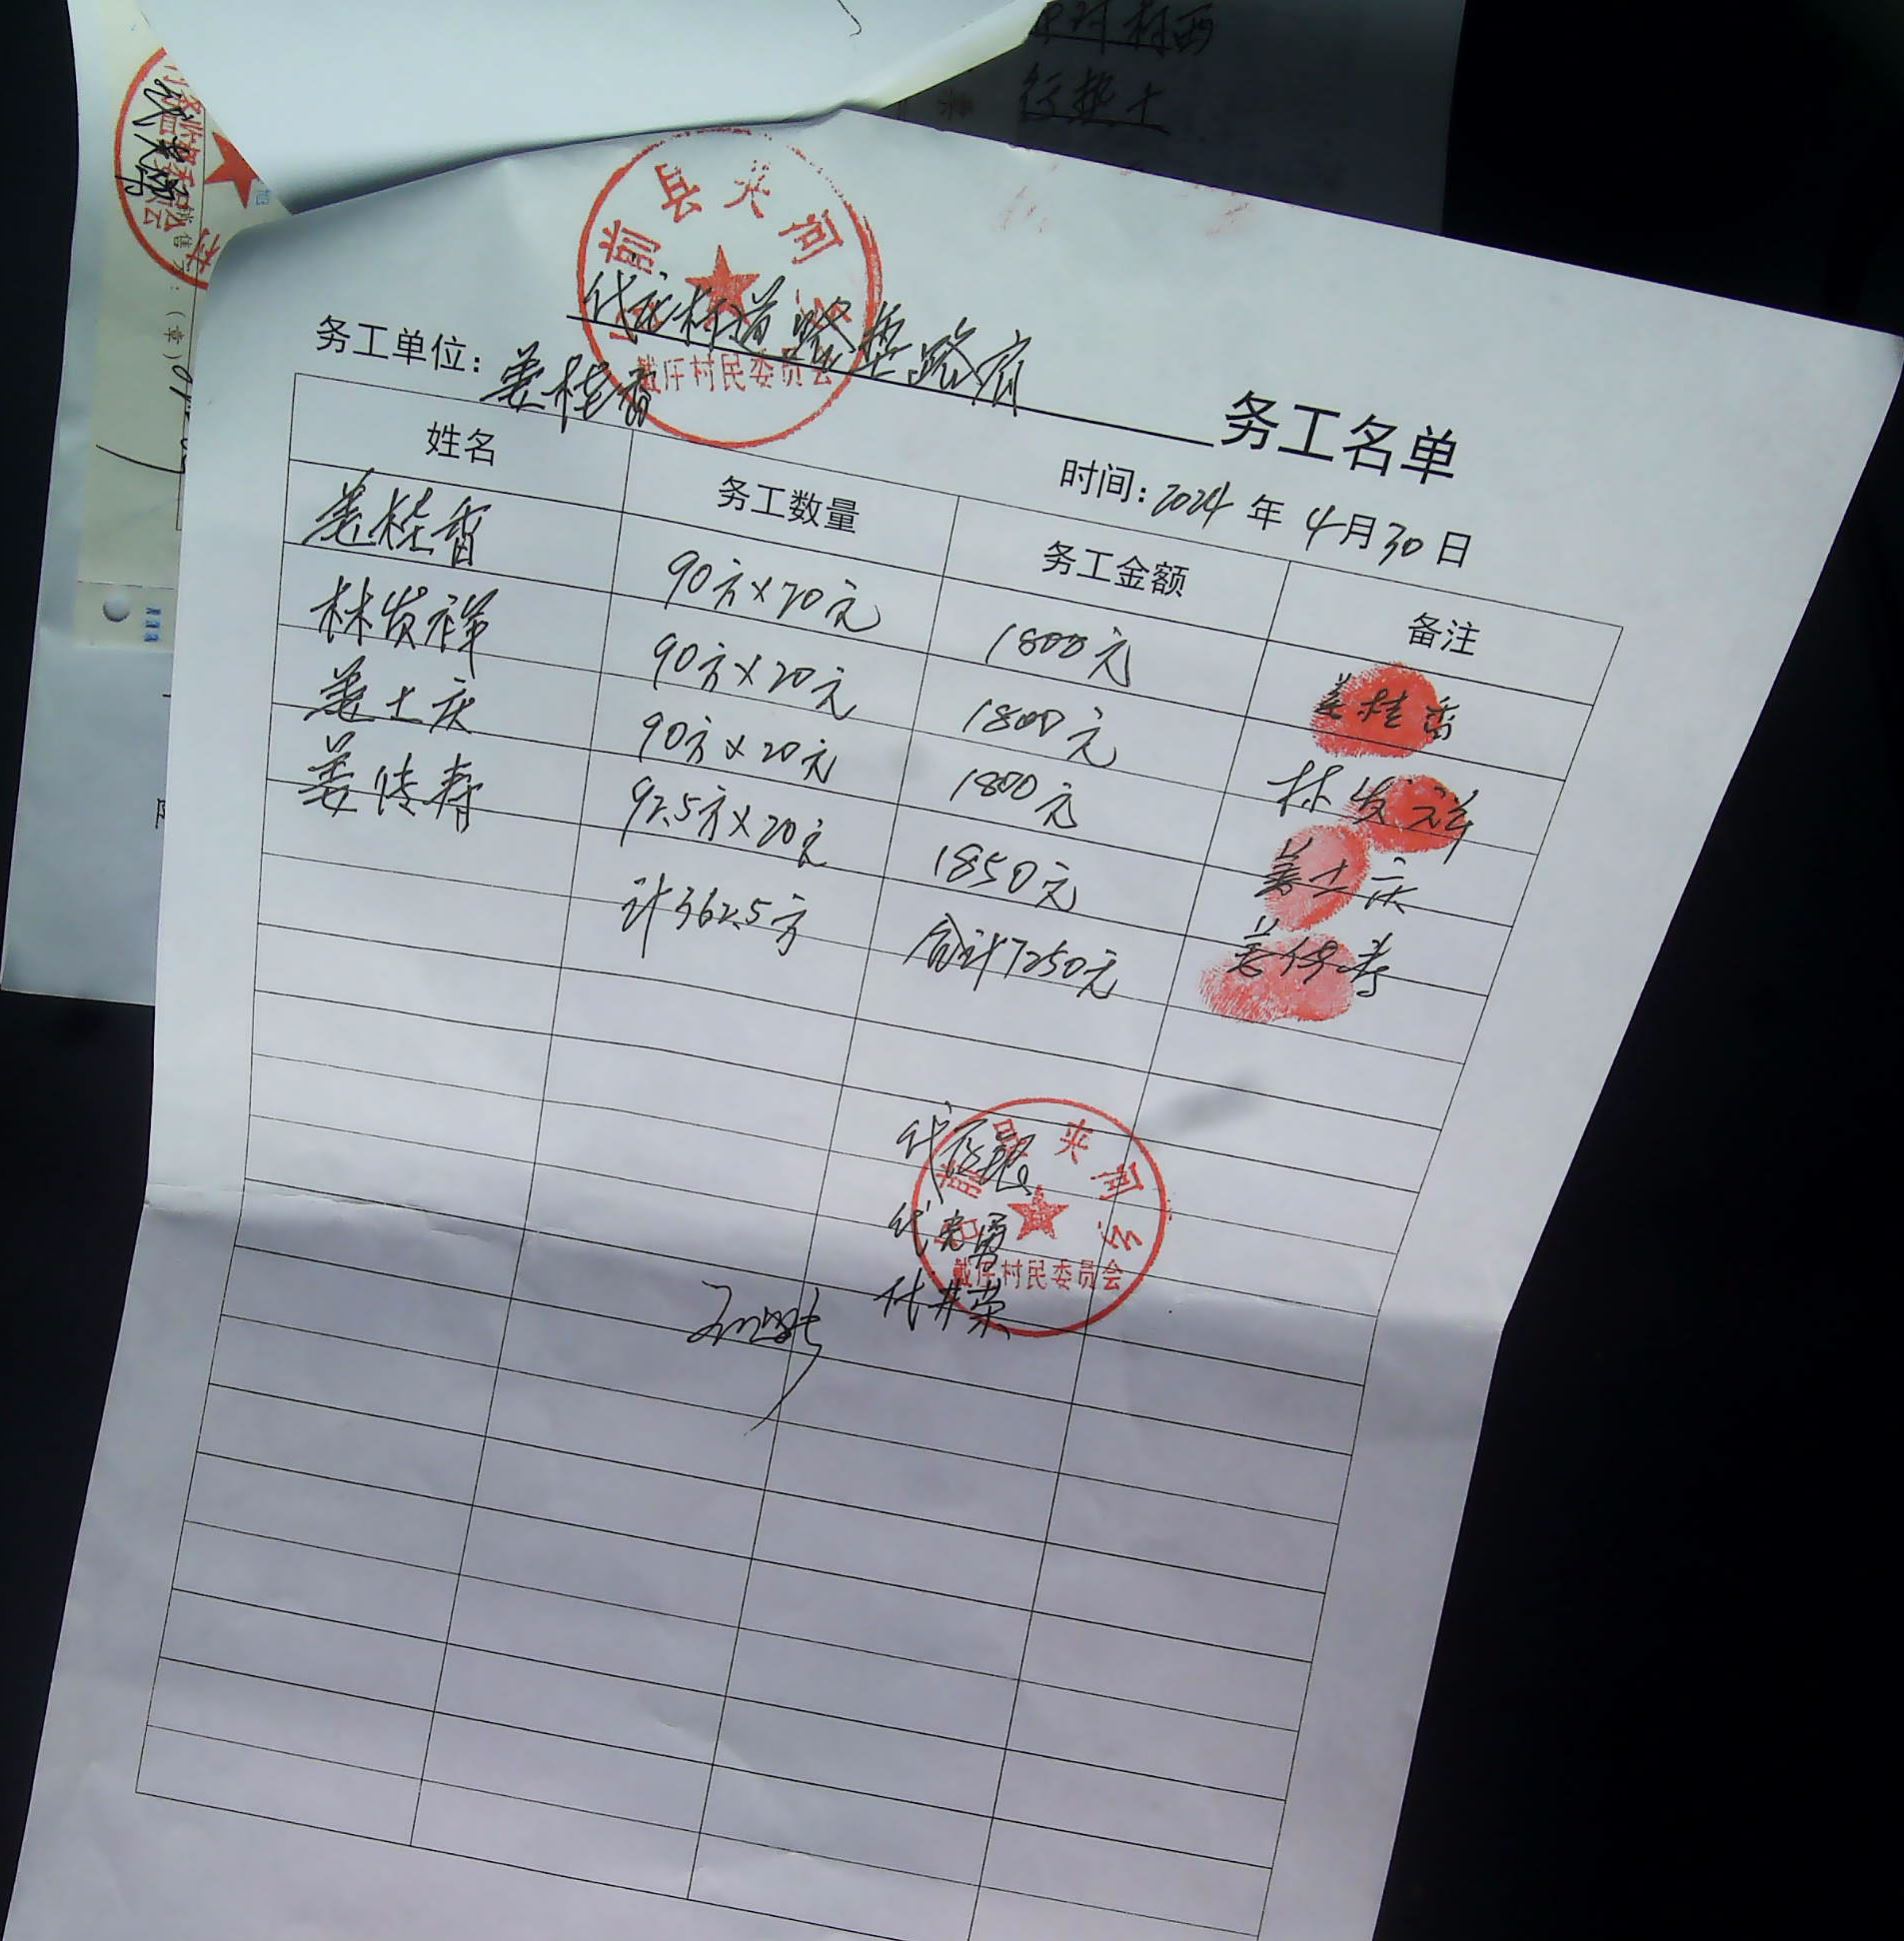 行垫土
县夹河
代庄村道路垫路肩 务工名单
戴庄村民委员会
务工单位：姜桂香 时间：2024年4月30日
姓名 务工数量 务工金额 备注
姜桂香 90方×20元 1800元 姜桂香
林发祥 90方×20元 1800元 林发祥
姜士庆 90方×20元 1800元 姜士庆
姜传寿 92.5方×20元 1850元 姜传寿
计362.5方 合计7250元
夹河乡
戴庄村民委员会
代井荣